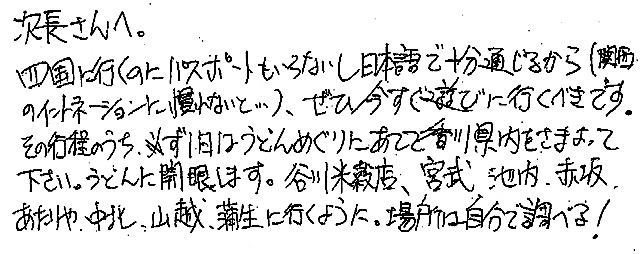 次長さんへ。
四国に行くのにパスポートもいらないし日本語で十分通じるから(関西
のイントネーションに慣れないと…)、ぜひ今すぐ遊びに行くべきです。
その行程のうち、必ず1日はうどんめぐりにあてて香川県内をさまよって
下さい。うどんに開眼します。谷川米穀店、宮武、池内、赤坂、
あたりや、中北、山越、蒲生に行くように。場所は自分で調べる!